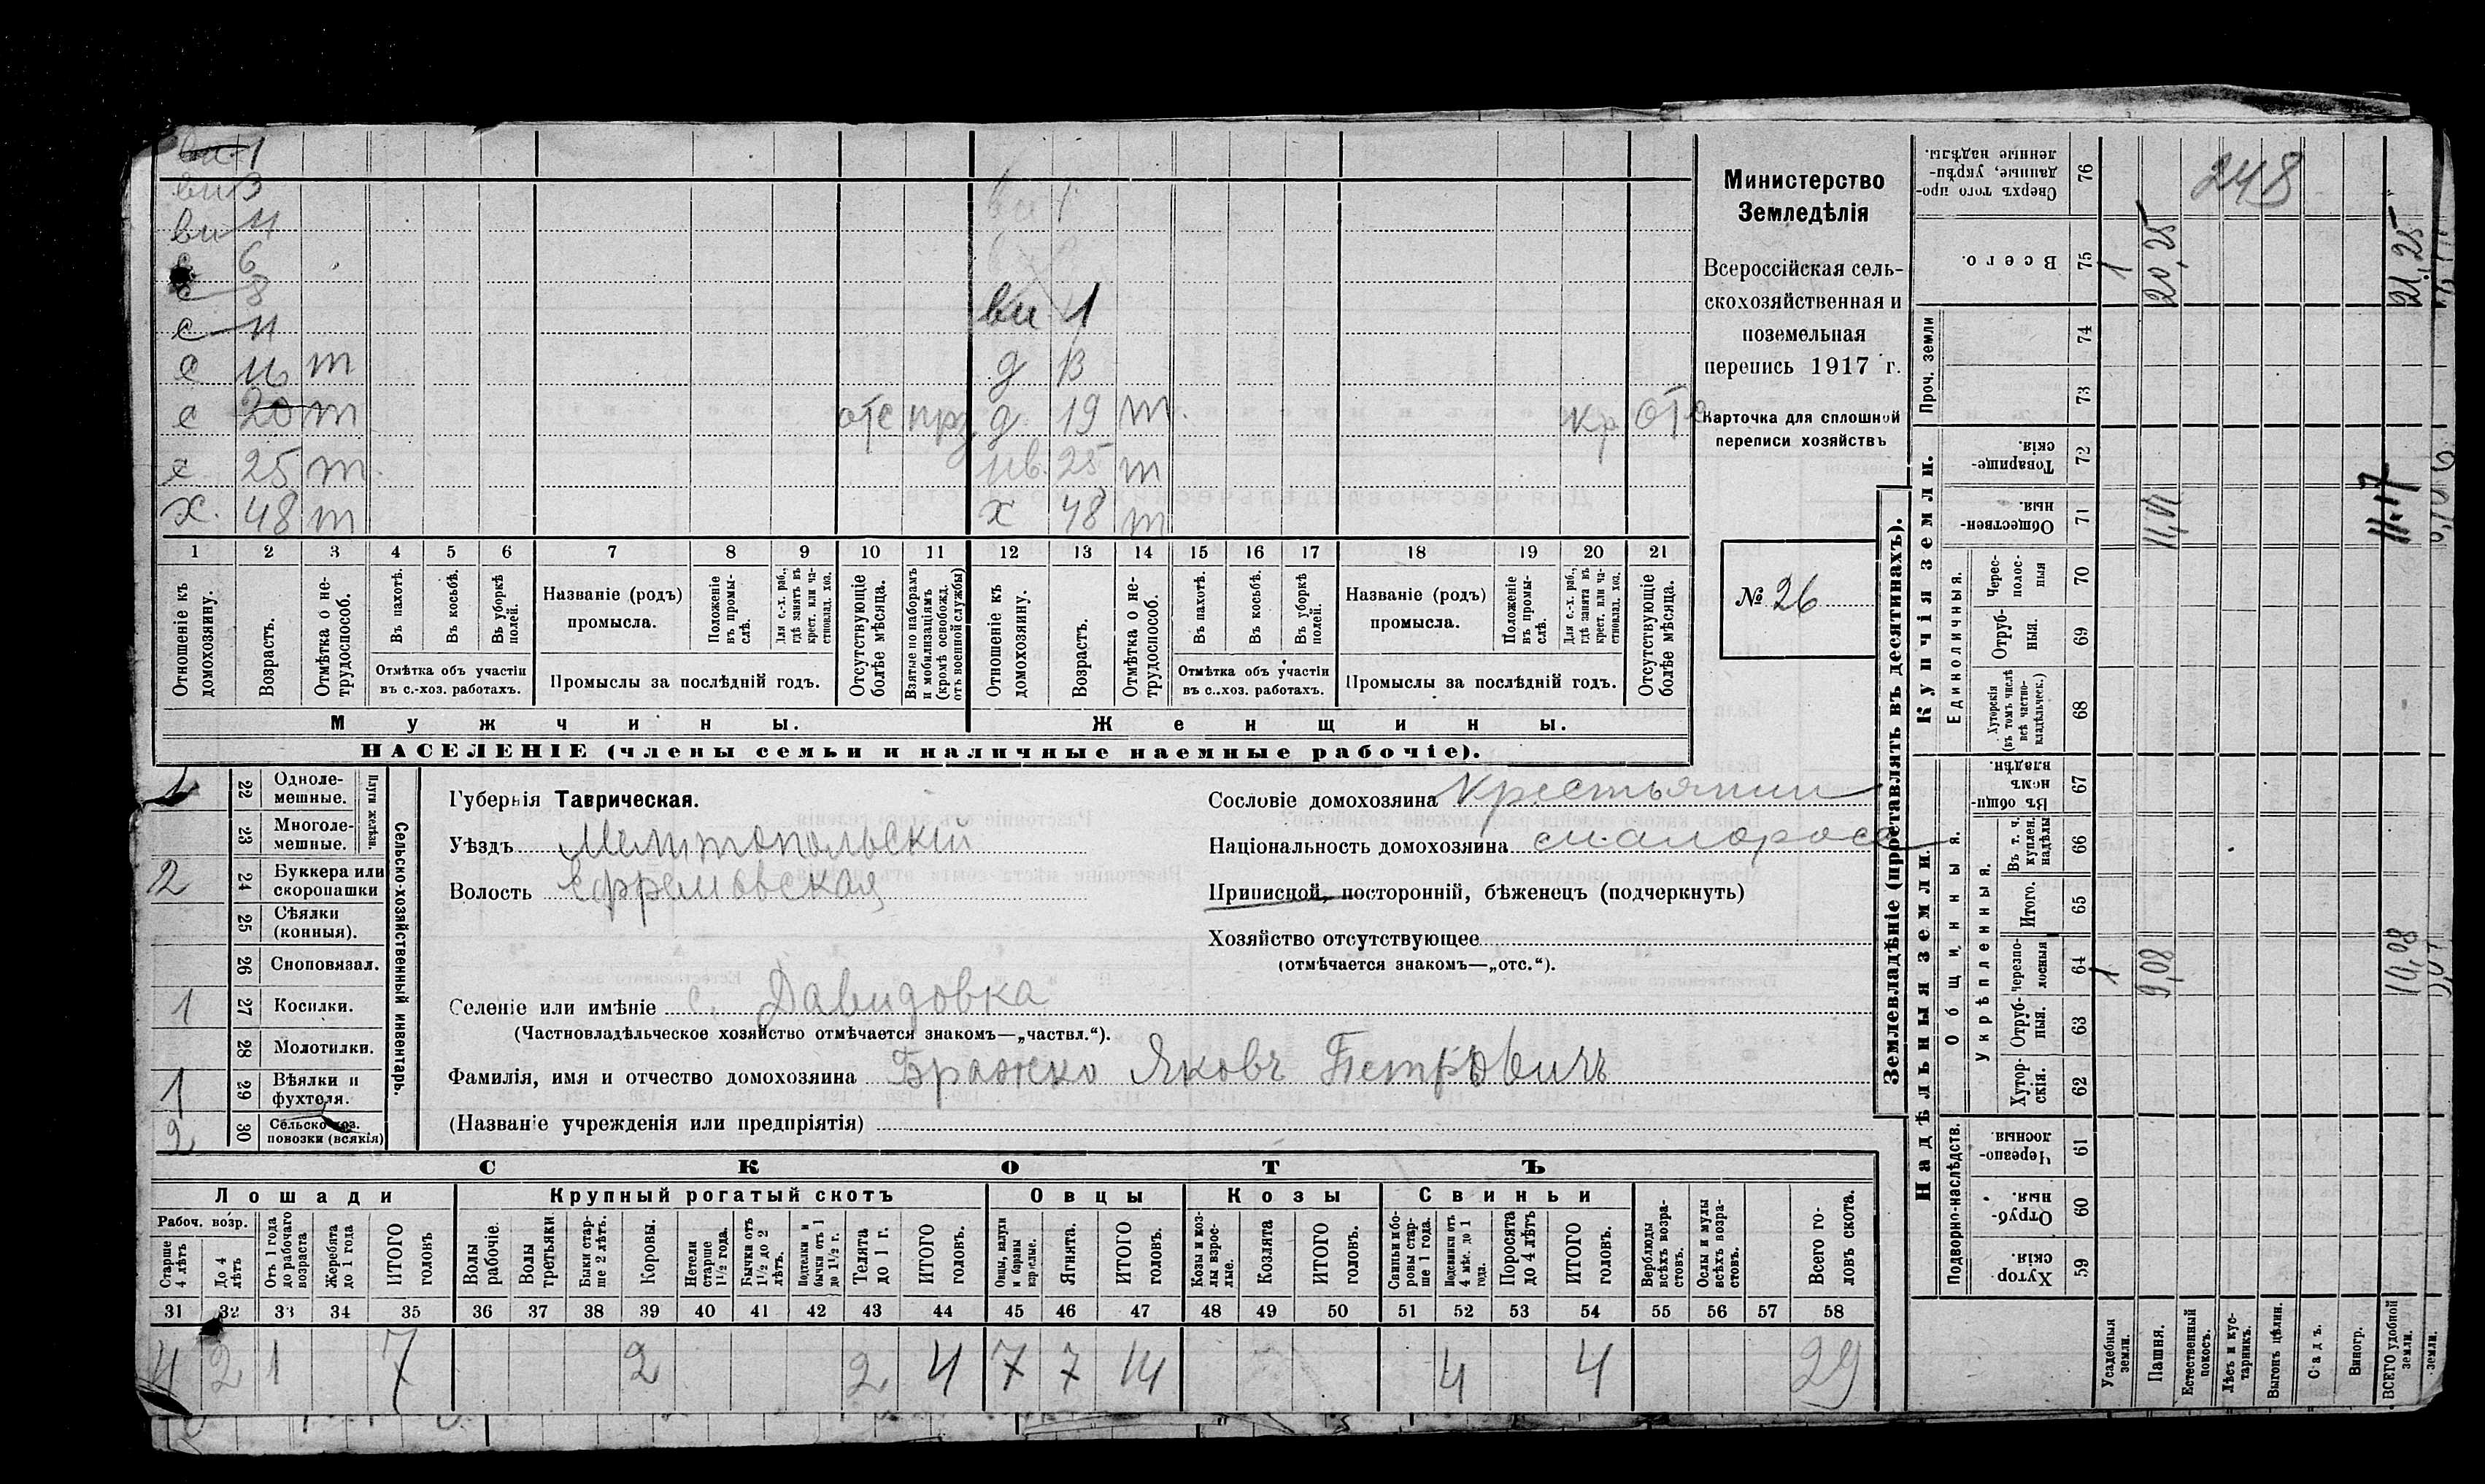 ви 1
ви 3
ви 4
с 6
с 8
с 11 ви 1
с 16 т д 13
с 20 т отс д 19 т кр отс
с 25 т 25 т
х. 48 т х 48 т
1 2 3 4 5 6 7 8 9 10 11 12 13 14 15 16 17 18 19 20 21
Отношеніе къ домохозяину.
Возрастъ.
Отмѣтка о нетрудоспособ.
Въ пахотѣ.
Въ косьбѣ.
Въ уборкѣ полей.
Отмѣтка объ участіи въ с.-хоз. работахъ.
Названіе (родъ) промысла.
Положеніе въ промыслѣ.
Для с.-х. раб., гдѣ занятъ въ крест. или частновлад. хоз.
Промыслы за послѣдній годъ.
Отсутствующіе болѣе мѣсяца.
Взятые по наборамъ и мобилизаціямъ (кромѣ освобожд. отъ военной службы)
Отношеніе къ домохозяину.
Возрастъ.
Отмѣтка о нетрудоспособ.
Въ пахотѣ.
Въ косьбѣ.
Въ уборкѣ полей.
Отмѣтка объ участіи въ с..хоз. работахъ.
Названіе (родъ) промысла.
Положеніе въ промыслѣ.
Для с.-х. раб., гдѣ занята въ крест. или частновлад. хоз.
Промыслы за послѣдній годъ.
Отсутствующіе болѣе мѣсяца.
Мужчины. Женщины.
НАСЕЛЕНІЕ (члены семьи и наличные наемные рабочіе).
Министерство
Земледѣлія
Всероссійская сель-
скохозяйственная и
поземельная
перепись 1917 г.
Карточка для сплошной
переписи хозяйствъ
№ 26
1 22 Однолемешные.
23 Многолемешные.
Плуги желѣзн.
2 24 Буккера или скоропашки
25 Сѣялки (конныя).
26 Сноповязал.
1 27 Косилки.
28 Молотилки.
1 29 Вѣялки и фухтеля.
2 30 Сельско-хоз. повозки (всякія)
Сельско-хозяйственный инвентарь.
Губернія Таврическая.
Уѣздъ Мелитопольскій
Волость Ефремовская
Сословіе домохозяина Крестьянин
Національность домохозяина малоросс
Приписной, посторонній, бѣженецъ (подчеркнуть)
Хозяйство отсутствующее
(отмѣчается знакомъ—„отс.“).
Селеніе или имѣніе с. Давидовка
(Частновладѣльческое хозяйство отмѣчается знакомъ—„частвл.“).
Фамилія, имя и отчество домохозяина Бражко Яковъ Петровичъ
(Названіе учрежденія или предпріятія)
СКОТЪ
Лошади Крупный рогатый скотъ Овцы Козы Свиньи
Рабоч. возр.
Старше 4 лѣтъ
До 4 лѣтъ
Отъ 1 года до рабочаго возраста
Жеребята до 1 года
ИТОГО головъ
Волы рабочіе.
Волы третьяки
Быки старше 2 лѣтъ.
Коровы.
Нетели старше 1 1/2 года.
Бычки отъ 1 1/2 до 2 лѣтъ.
Подтелки и бычки отъ 1 до 1 1/2 г.
Телята до 1 г.
ИТОГО головъ.
Овцы, валухи и бараны взрослые.
Ягнята.
ИТОГО головъ.
Козы и козлы взрослые.
Козлята
ИТОГО головъ.
Свиньи боровы старше 1 года.
Подсвинки отъ 4 мѣс. до 1 года.
Поросята до 4 лѣтъ
ИТОГО головъ.
Верблюды всѣхъ возрастовъ.
Ослы и мулы всѣхъ возрастовъ.
Всего головъ скота.
31 32 33 34 35 36 37 38 39 40 41 42 43 44 45 46 47 48 49 50 51 52 53 54 55 56 57 58
4 2 1 7 2 2 4 7 7 14 4 4 29
Землевладѣніе (проставлять въ десятинахъ).
Надѣльныя земли.
Купчія земли.
Проч. земли
Подворно-наслѣдств.
Общинныя.
Укрѣпленныя.
Единоличныя.
Сверхъ того проданные, укрѣпленные надѣлы. 76 248
Всего. 75 1 20,25 21,25
74
73
Товарищескія. 72
Общественныя. 71 11,17 11.17
Чересполосныя 70
Отрубныя. 69
Хуторскія (въ томъ числѣ всѣ частновладѣльческ.) 68
Въ общинномъ владѣн. 67
Въ т. ч. куплен. надѣлы 66
Итого. 65
Черезполосныя 64 1 9,08 10,08
Отрубныя. 63
Хуторскія. 62
Черезполосныя. 61
Отрубныя. 60
Хуторскія. 59
Усадебныя земли.
Пашня.
Естественный покосъ.
Лѣсъ и кустарникъ.
Выгонъ цѣлин.
Садъ.
Виногр.
ВСЕГО удобной земли.
земли.